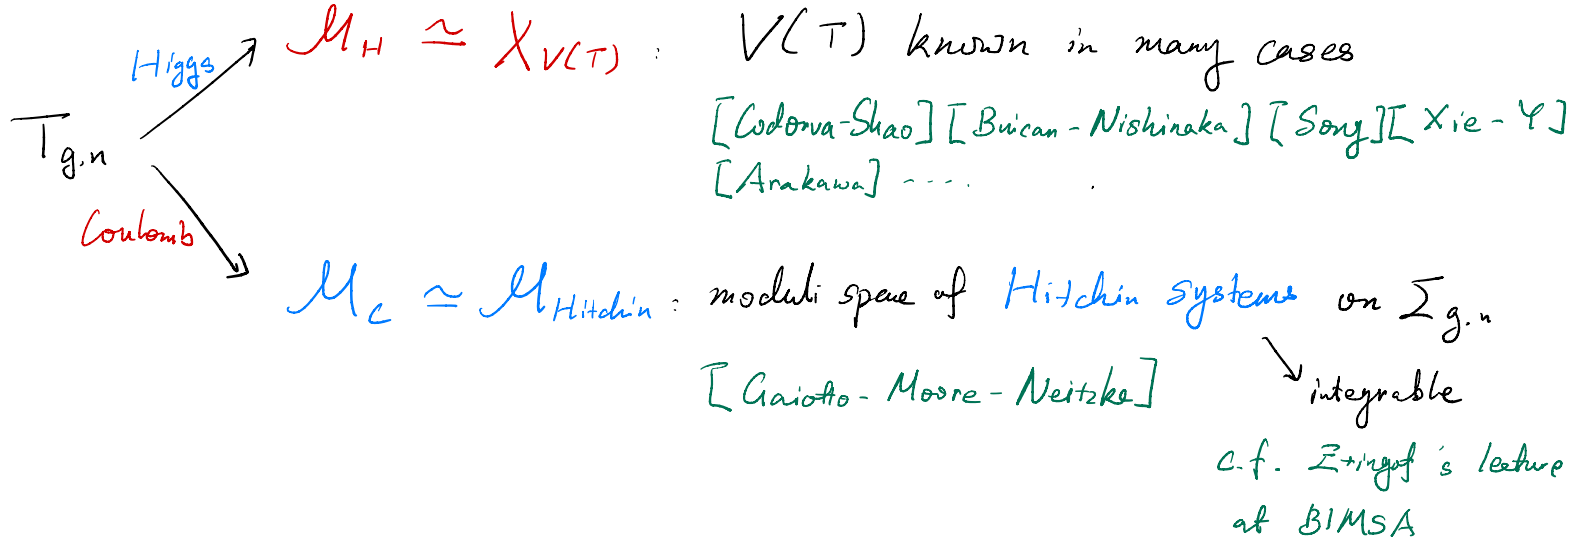 Higgs
M_H ≃ X_V(T) : V(T) known in many cases
[Codorva-Shao] [Buican-Nishinaka] [Song] [Xie-Y]
[Arakawa] ....
T_g,n
Coulomb
M_C ≃ M_Hitchin : moduli space of Hitchin systems on Σ_g,n
[Gaiotto-Moore-Neitzke]
integrable
c.f. Etingof's lecture
at BIMSA